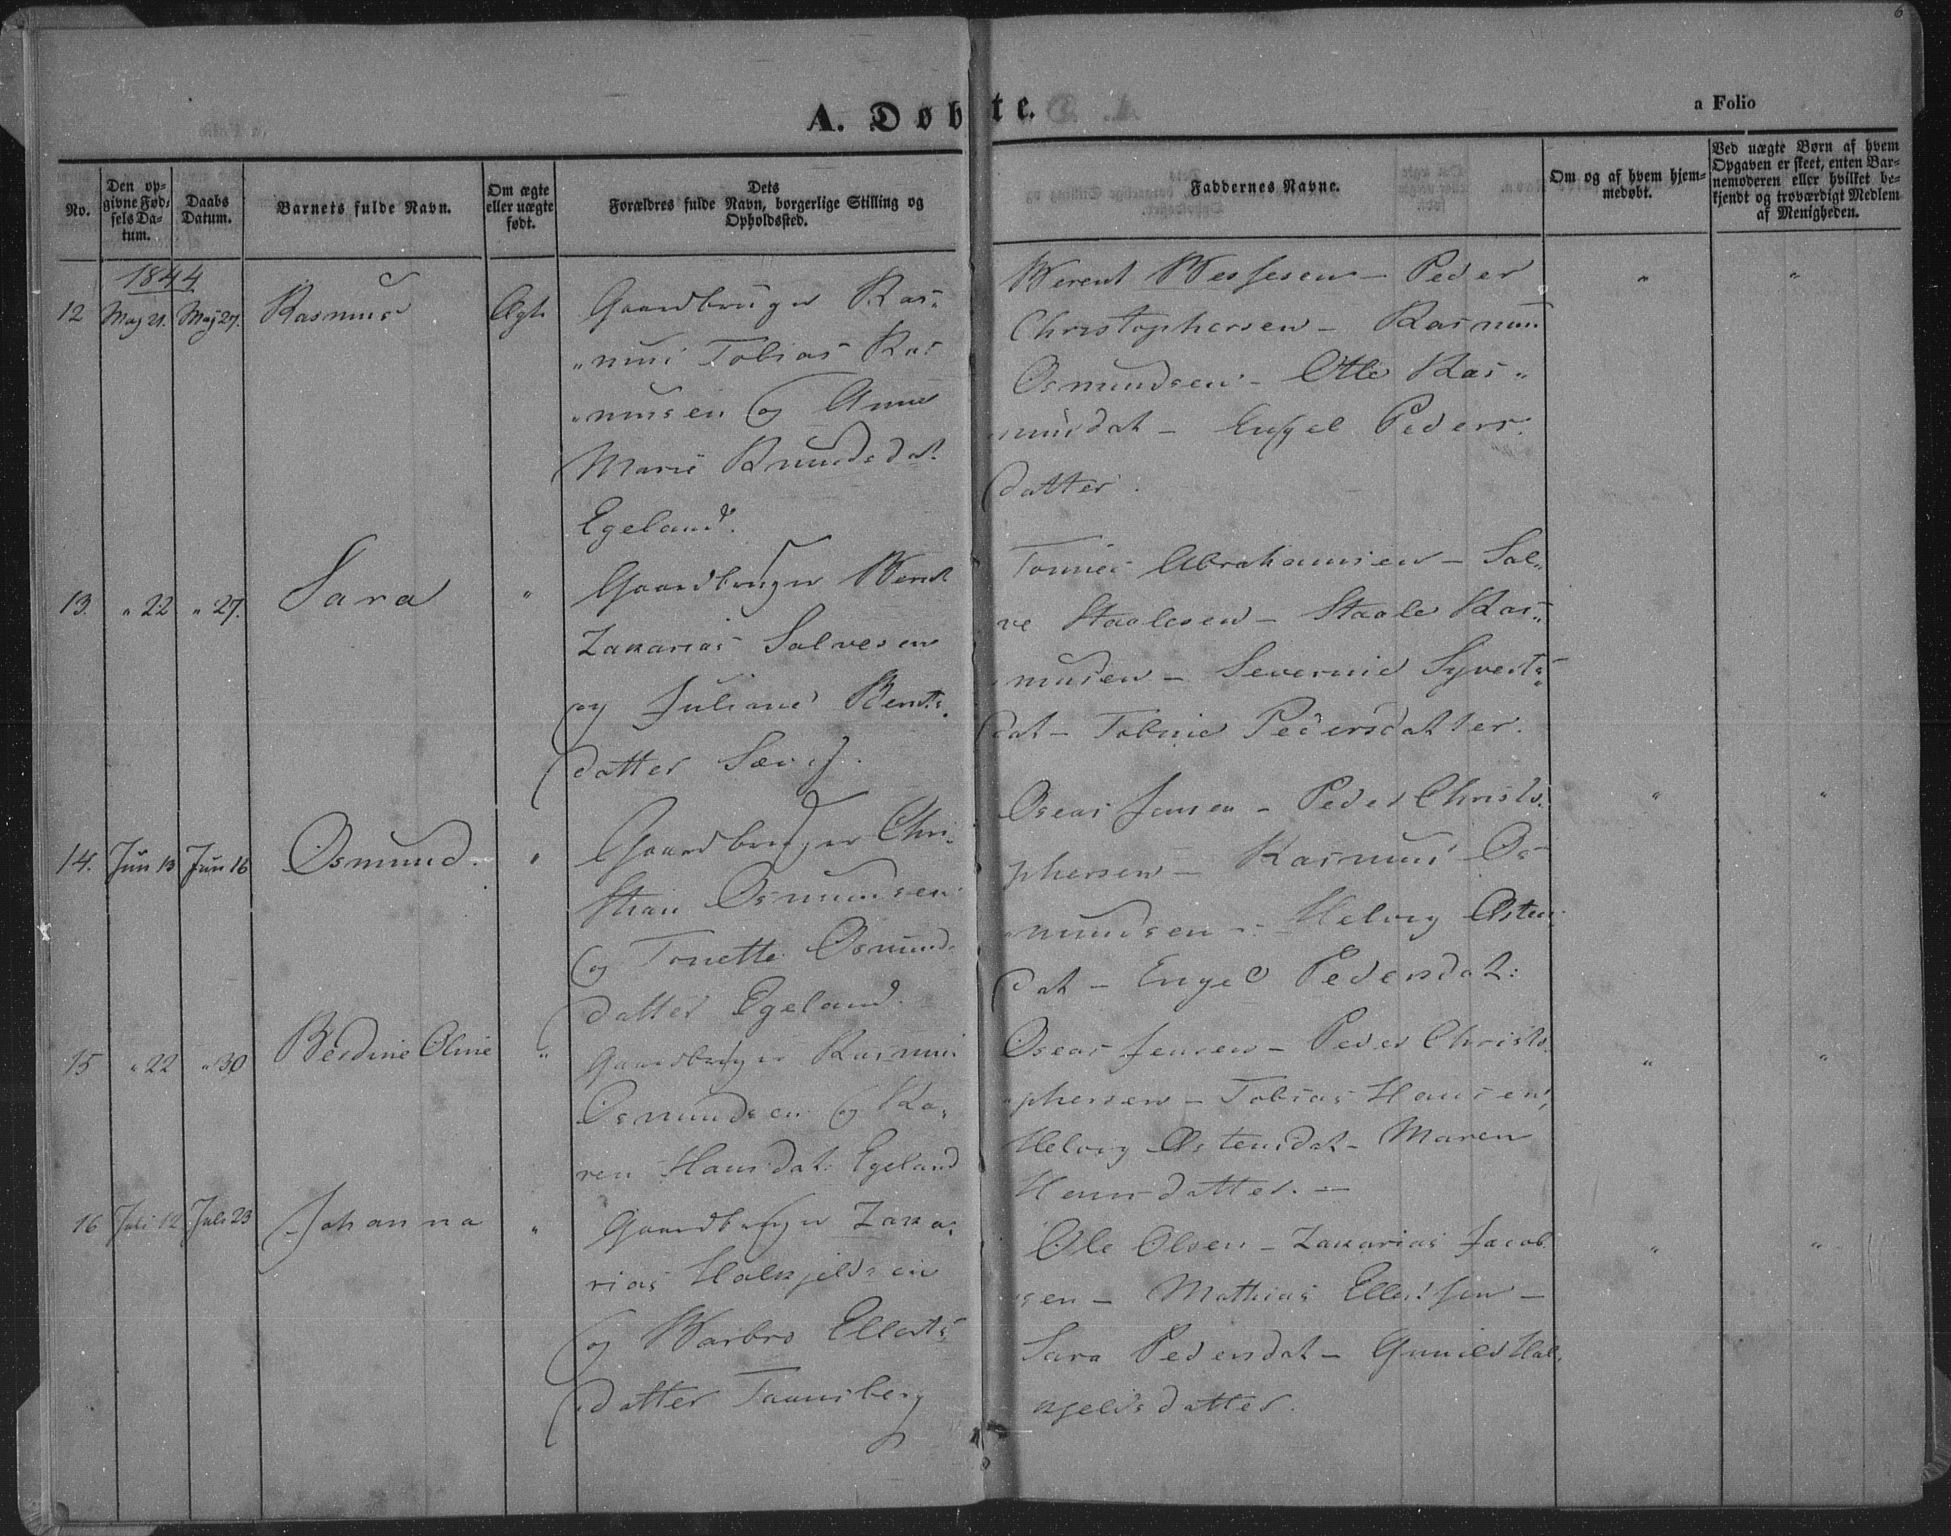 6
A. Døbte.
a Folio
No.
Den op-
givne Fød-
sels Da-
tum.
Daabs
Datum.
Barnets fulde Navn.
Om ægte
eller uægte
født.
Dets
Forældres fulde Navn, borgerlige Stilling og
Opholdssted.
Faddernes Navne.
Om og af hvem hjem-
medøbt.
Ved uægte Børn af hvem
Opgaven er skeet, enten Bar-
nemoderen eller hvilket be-
kjendt og troværdigt Medlem
af Menigheden.
1844
12 Maj 21. Maj 27. Rasmus Ægte
Gaardbruger Ras-
"mus Tobias Ras
"musen og Anne
Marie Knudsdat
Egeland.
Berent - Peder
Christophersen - Rasmus
Osmundsen - Ras-"
musdat - Engel Peders.
datter.
" "
13. " 22 " 27. Sara "
Gaardbruger Bernt
Zakarias Salvesen
og Juliane Bernts.
datter
Tønnes Abrahamsen - Sal-
ve Staalesen - Staale Ras-
musen - Severine Syverts-
dat - Tobine Pedersdatter.
14. Jun 13 Jun 16 Osmund. "
Gaardbruger Chri-
stian Osmundsen
og Tonette Osmunds
datter Egeland.
Oseas Jensen - Peder Christo.
phersen - Rasmus Os
mundsen - Helvig Østen
dat - Engel Pedersdat:
" "
15 " 22 " 30 Berdine Oline "
Gaardbruger Rasmus
Osmundsen og Ka-
ren Hansdat: Egeland
Oseas Jensen - Peder Christo.
phersen - Tobias Hansen,
Helvig Østensdat - Maren
Hansdatter. -
" "
16 Juli 12 Juli 23 Johanna "
Gaardbruger Zaka-
rias Halkjeldsen
og Barbro Ellerts-
datter Taansberg
Ole Olsen - Zakarias Jacob
sen - Mathias Ellertsen -
Sara Pedersdat - Gunild Hal-
kjeldsdatter.
" "